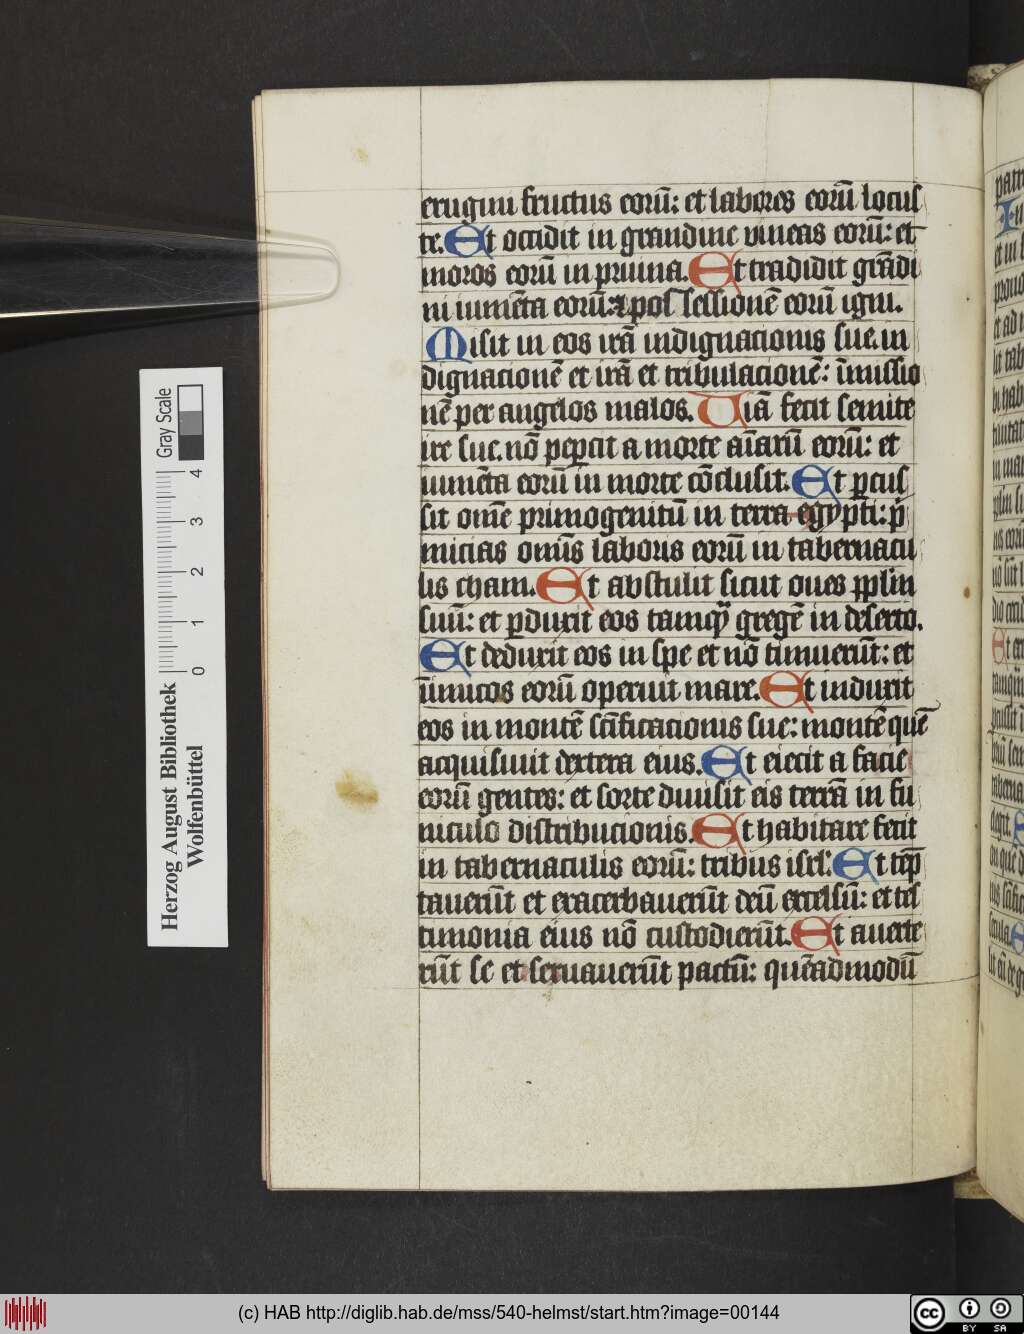 erugini fructus eorū: et labores eorū locus
te. Et occidit in grandine vineas eorū: et
moros eorū in pruina. Et tradidit grādi
ni iumēta eorū: ⁊ possessionē eorū igni.
Misit in eos irā indignacionis sue. in
dignacionē et irā et tribulacionē: īmissio
nē per angelos malos. Uiā fecit semite
ire sue. nō peꝑcit a morte aīarū eorū: et
iumēta eorū in morte cōclusit. Et ꝑcus
sit omē primogenitū in terra egypti: p̄
micias omīs laboris eorū in tabernacu
lis cham. Et abstulit sicut oues ppl̄m
suū: et ꝑduxit eos tamqͣ gregē in deserto.
Et deduxit eos in spe et nō timuerūt: et
īimicos eorū operuit mare. Et induxit
eos in montē scīficacionis sue: montē quē
acquisiuit dextera eius. Et eiecit a facie
eorū gentes: et sorte diuisit eis terrā in fu
niculo distribucionis. Et habitare fecit
in tabernaculis eorū: tribus isrl̄. Et tēp
tauerūt et exacerbauerūt deū excelsū: et tes
timonia eius nō custodierūt. Et auerte
rūt se et seruauerūt pactū: quēadmodū
Gray Scale
0 1 2 3 4
Herzog August Bibliothek
Wolfenbüttel
(c) HAB http://diglib.hab.de/mss/540-helmst/start.htm?image=00144
cc BY SA